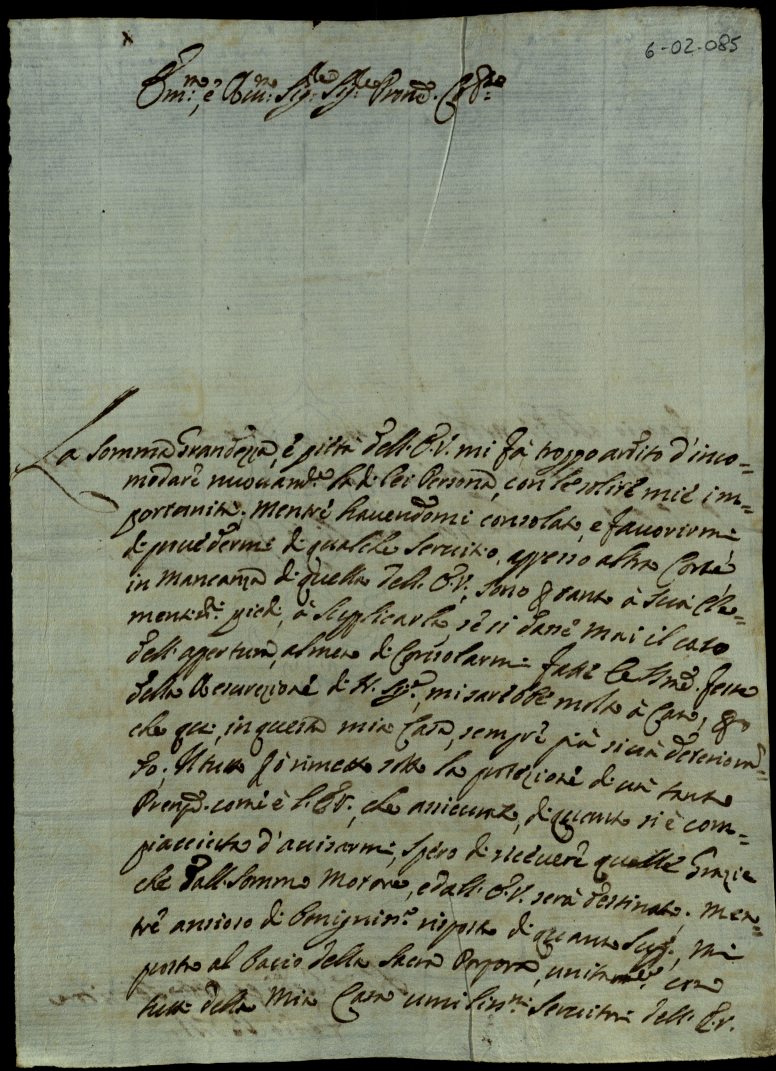 6-02-085
Em:mo, e Rev:mo Sig:re Sig:re Pron̄e. Col:mo
La somma Grandezza, e pietà dell'E.V. mi fà troppo ardito d'inco=
modare nuovam:te la di Lei Persona, con le solite mie im=
portunità; mentre havendomi consolato, e favorirmi
di provedermi di qualche servitio, appresso altra Corte
in mancanza di quella dell'E.V., sono per tanto à suoi Cle=
ment:mi piedi, à supplicarla se si dasse mai il caso
dell'appertura, almeno di Consolarmi fatte le feste
della Resurezione di N. Sig:re, mi sarebbe molto à Caro,
che quì, in questa mia Casa, sempre più si và deterioran=
do; Il tutto però rimetto sotto la protezione di un tanto
Prencipe come è l'E.V., che assicurato, di quanto si è com=
piacciuta d'avisarmi, spero di ricevere quelle Grazie
che dall. Sommo Motore, e dall'E.V. serà destinato; Men=
tre ansioso di Benigniss:ma risposta di quanto Supp:, mi
porto al bacio della Sacra Porpora, unitam:te con
tutti della mia Casa umiliss:mi Servitori dell'E.V.